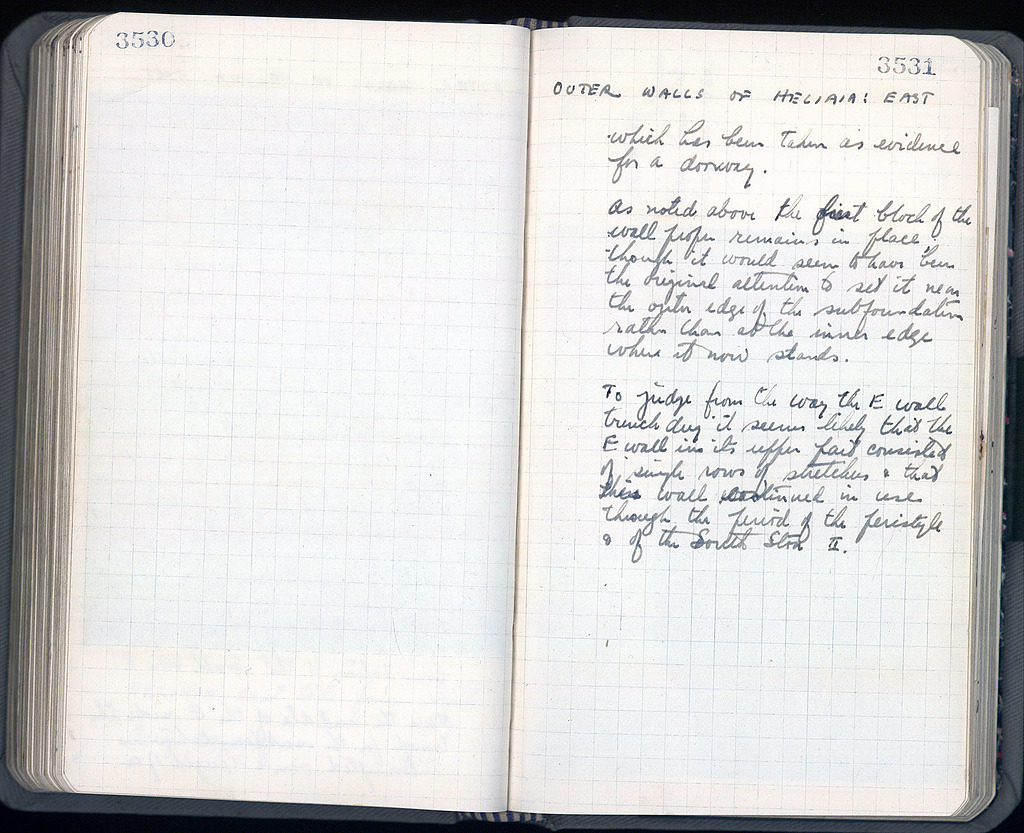 3530
3531
OUTER WALLS OF HELIAIA: EAST
which has been taken as evidence
for a doorway.
As noted above the first block of the
wall proper remains in place
though it would seem to have been
the original attention to set it near
the outer edge of the subfoundation
rather than at the inner edge
where it now stands.
To judge from the way the E wall
trench dug it seems likely that the
E wall in its upper part consisted
of single rows of stretchers & that
this wall continued in use
through the period of the peristyle
& of the South Stoa II.